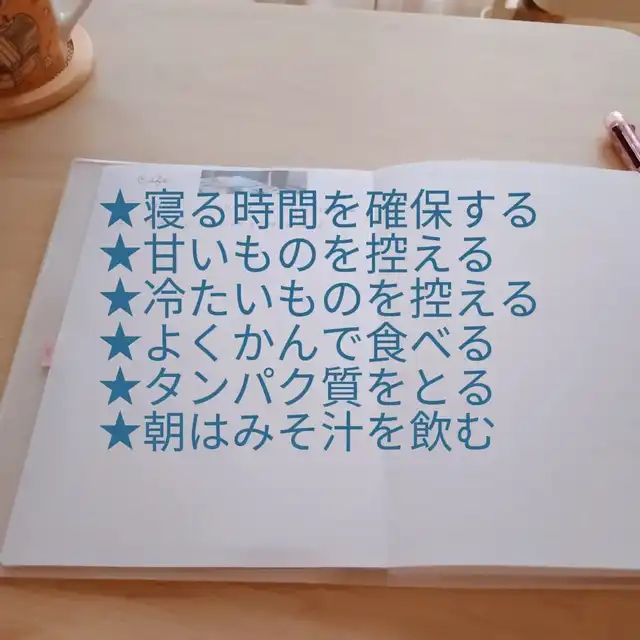 ★寝る時間を確保する
★甘いものを控える
★冷たいものを控える
★よくかんで食べる
★タンパク質をとる
★朝はみそ汁を飲む